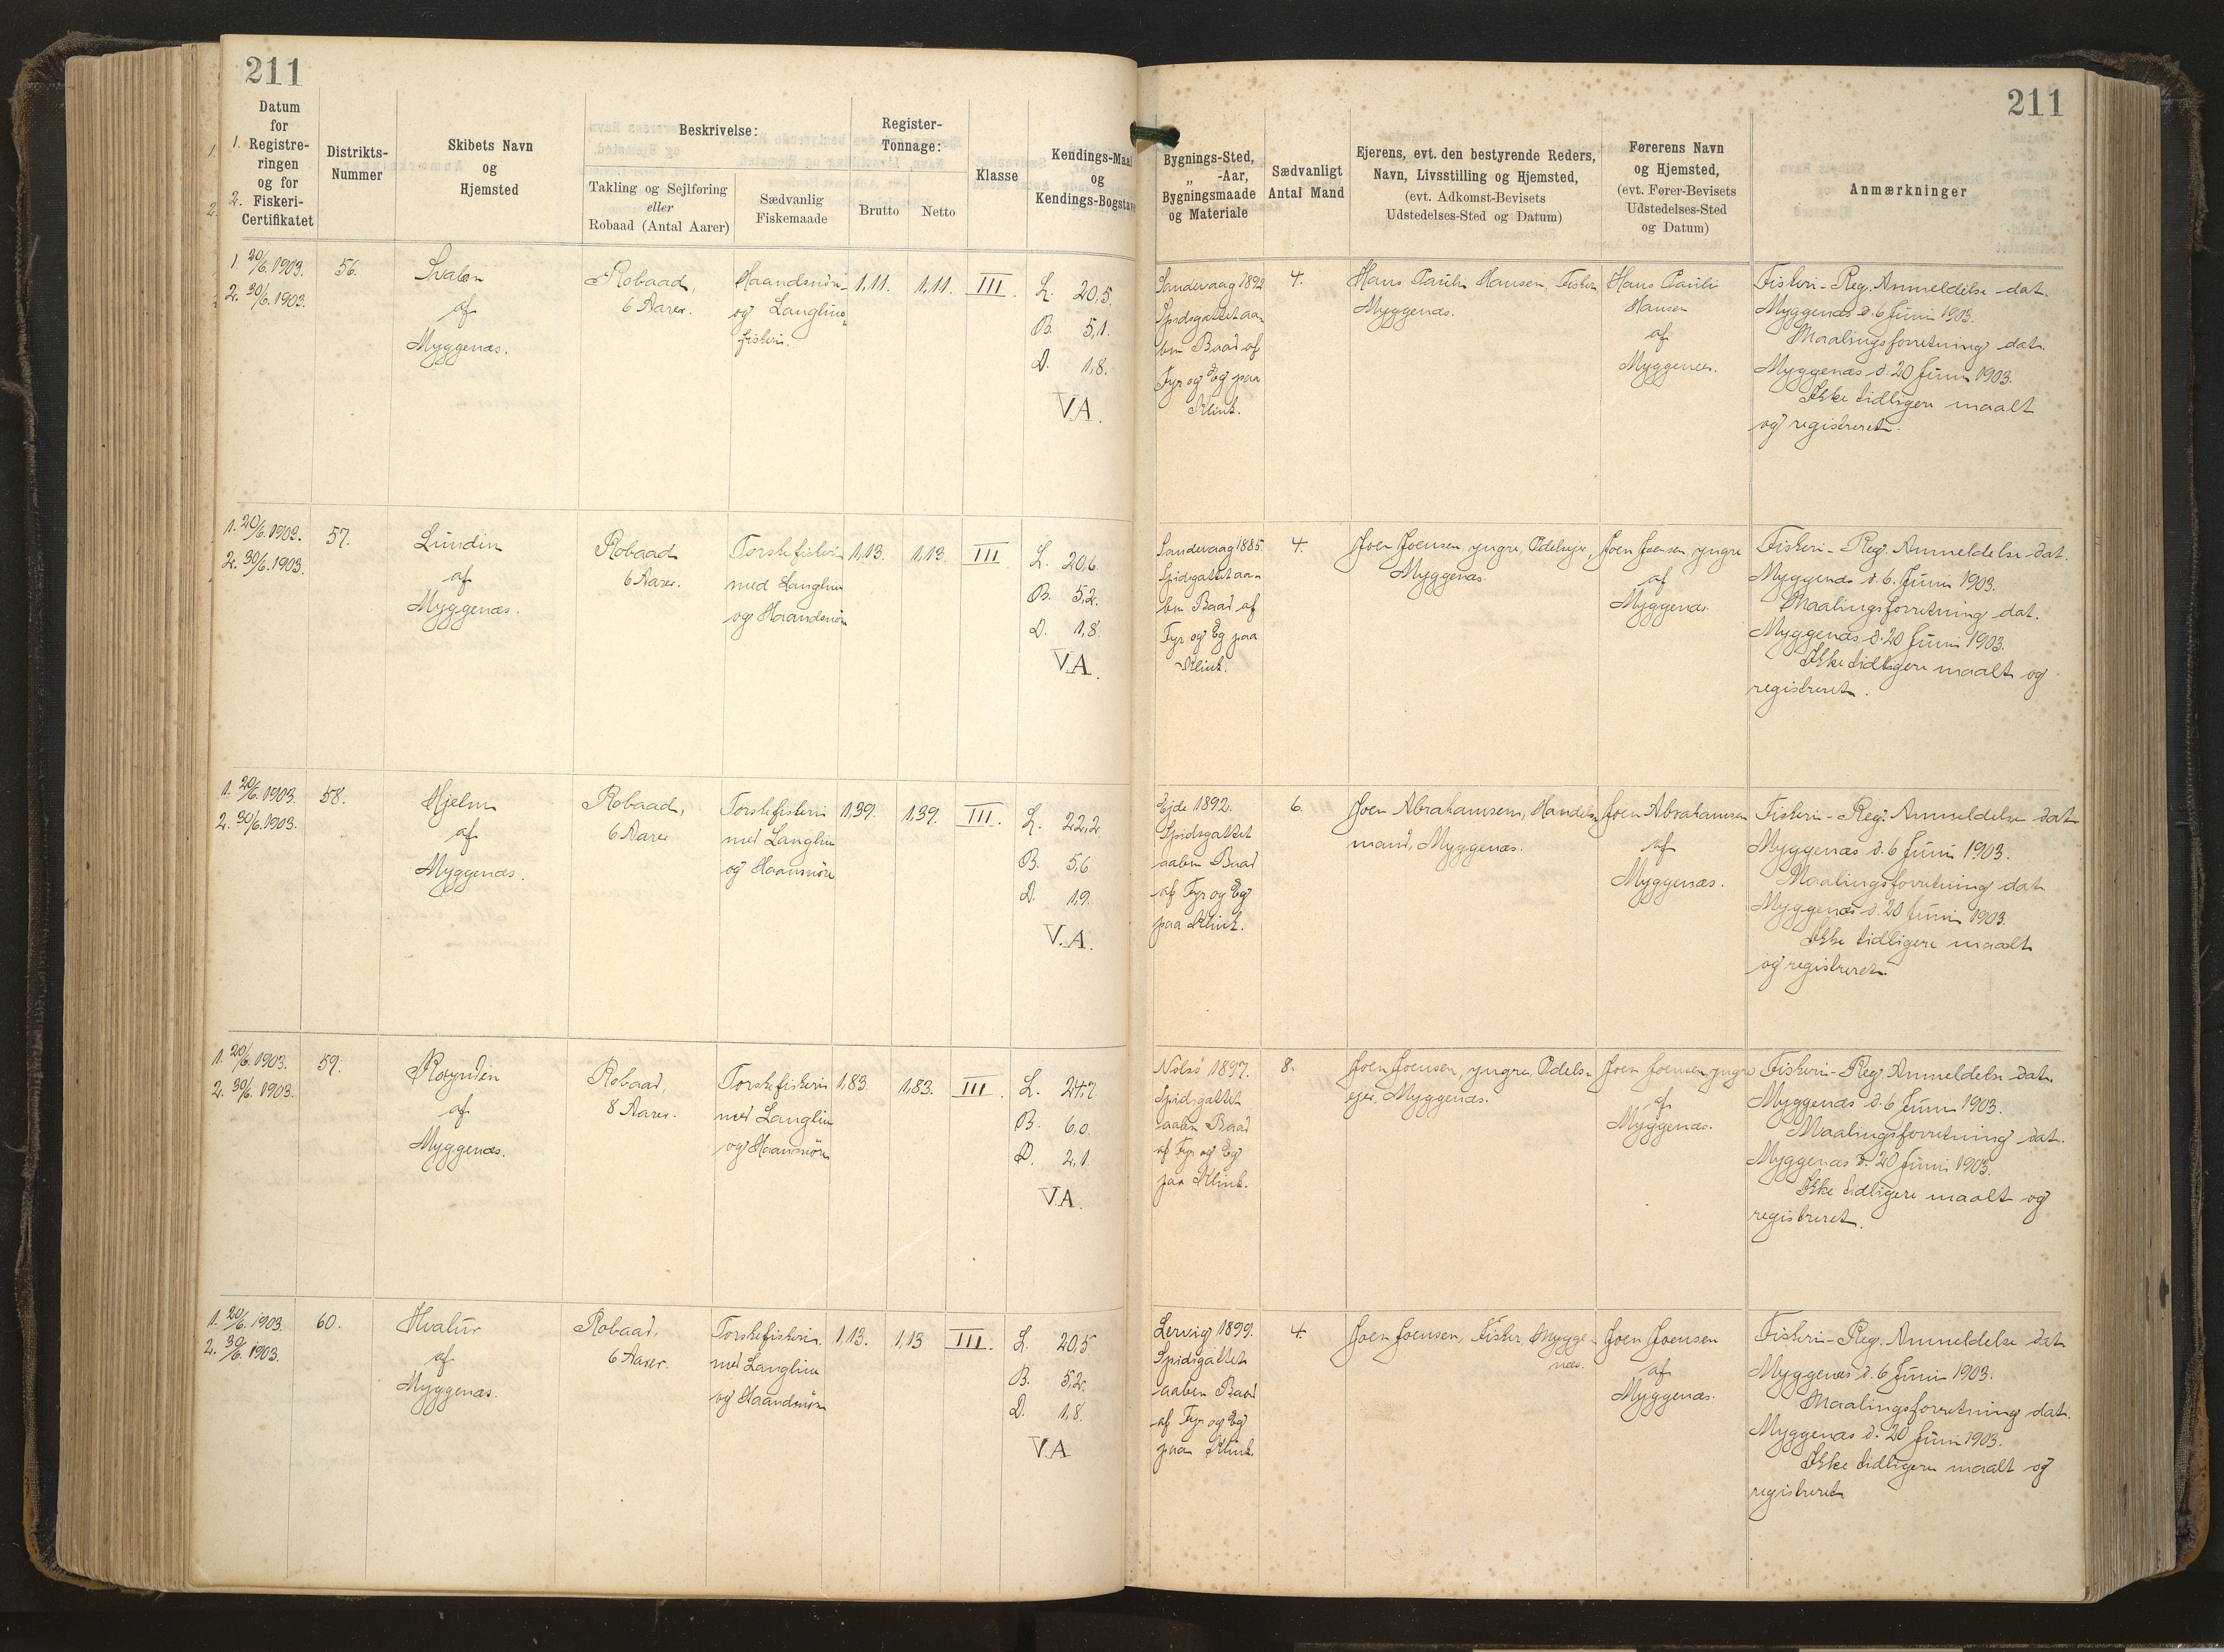 211
Datum
for
1. Registre-
ringen
og for
2. Fiskeri-
Certifikatet
Distrikts-
Nummer
Skibets Navn
og
Hjemsted
Beskrivelse:
Takling og Sejlføring
eller
Robaad (Antal Aarer)
Sædvanlig
Fiskemaade
Register-
Tonnage:
Brutto
Netto
Klasse
Kendings-Maal
og
Kendings-Bogstave
1. 20/6. 1903.
2. 30/6. 1903.
56.
Svalen
af
Myggenæs.
Robaad,
6 Aarer.
Haandsnöre-
og Langline-
fiskeri.
1,11.
1,11.
III.
L. 20,5.
B. 5,1.
D. 1,8.
V.A.
1. 20/6. 1903.
2. 30/6. 1903.
57.
Lundin
af
Myggenæs.
Robaad
6 Aarer.
Torskefiskeri
med Langline
og Haandsnöre
1,13.
1,13.
III
L. 20,6
B. 5,2.
D. 1,8.
V.A.
1. 20/6. 1903.
2. 30/6. 1903.
58.
Hjelm
af
Myggenæs.
Robaad,
6 Aarer
Torskefiskeri
med Langline
og Haansnöre
1,39.
1,39.
III.
L. 22,2
B. 5,6
D. 1,9.
V.A.
1. 20/6. 1903.
2. 30/6. 1903.
59.
Royndin
af
Myggenæs.
Robaad,
8 Aarer.
Torskefiskeri
med Langline
og Haansnöre
1,83.
1,83.
III.
L. 24,7
B. 6,0.
D. 2,1.
V.A.
1. 20/6. 1903.
2. 30/6. 1903.
60.
Hvalur
af
Myggenæs.
Robaad,
6 Aarer.
Torskefiskeri
med Langline
og Haandsnöre
1,13.
1,13
III.
L. 20,5
B. 5,2.
D. 1,8.
V.A
211
Bygnings-Sted,
„ -Aar,
Bygningsmaade
og Materiale
Sædvanligt
Antal Mand
Ejerens, evt. den bestyrende Reders,
Navn, Livsstilling og Hjemsted,
(evt. Adkomst-Bevisets
Udstedelses-Sted og Datum)
Førerens Navn
og Hjemsted,
(evt. Fører-Bevisets
Udstedelses-Sted
og Datum)
Anmærkninger
Sandevaag 1892
Spidsgattet aa-
ben Baad af
Fyr og Eg paa
Klink.
4.
Hans Pauli Hansen, Fisker
Myggenæs.
Hans Pauli
Hansen
af
Myggenæs.
Fiskeri-Reg. Anmeldelse dat.
Myggenæs d. 6 Juni 1903.
Maalingsforretning dat.
Myggenæs d. 20 Juni 1903.
Ikke tidligere maalt
og registreret.
Sandevaag 1885.
Spidsgattet aa-
ben Baad af
Fyr og Eg paa
Klink.
4.
Joen Joensen, yngre, Odelsejer,
Myggenæs.
Joen Joensen, yngre
af
Myggenæs.
Fiskeri-Reg. Anmeldelse dat.
Myggenæs d. 6. Juni 1903.
Maalingsforretning dat.
Myggenæs d. 20 Juni 1903.
Ikke tidligere maalt og
registreret.
Ejde 1892.
Spidsgattet
aaben Baad
af Fyr og Eg
paa Klink.
6.
Joen Abrahamsen, Handels-
mand, Myggenæs.
Joen Abrahamsen
af
Myggenæs.
Fiskeri-Reg. Anmeldelse dat
Myggenæs d. 6 Juni 1903.
Maalingsforretning dat
Myggenæs d. 20 Juni 1903.
Ikke tidligere maalt
og registreret.
Nolsö 1897.
Spidsgattet
aaben Baad
af Fyr og Eg
paa Klink.
8.
Joen Joensen, yngre, Odels-
ejer, Myggenæs.
Joen Joensen yngre
af
Myggenæs.
Fiskeri-Reg. Anmeldelse dat.
Myggenæs d. 6 Juni 1903.
Maalingsforretning dat.
Myggenæs d. 20 Juni 1903.
Ikke tidligere maalt og
registreret.
Lervig 1899.
Spidsgattet
aaben Baad
af Fyr og Eg
paa Klink.
4.
Joen Joensen, Fisker, Mygge-
næs.
Joen Joensen
af
Myggenæs.
Fiskeri-Reg. Anmeldelse dat
Myggenæs d. 6 Juni 1903.
Maalingsforretning dat.
Myggenæs d. 20 Juni 1903.
Ikke tidligere maalt og
registreret